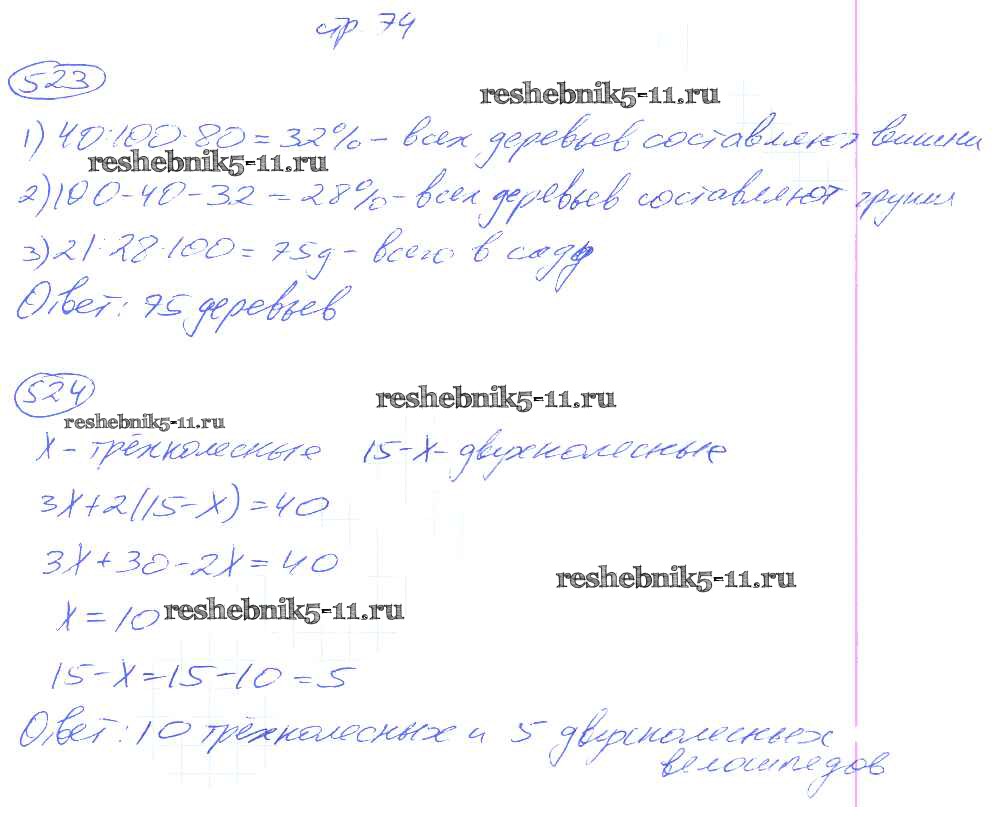 стр 74
523
reshebnik5-11.ru
1) 40:100·80=32% - всех деревьев составляют вишни
reshebnik5-11.ru
2) 100-40-32=28% - всех деревьев составляют груши
3) 21:28·100=75д - всего в саду
Ответ: 75 деревьев
524
reshebnik5-11.ru
reshebnik5-11.ru
X - трёхколесные 15-X - двухколесные
3X+2(15-X)=40
3X+30-2X=40
reshebnik5-11.ru
X=10
reshebnik5-11.ru
15-X=15-10=5
Ответ: 10 трёхколесных и 5 двухколесных
велосипедов